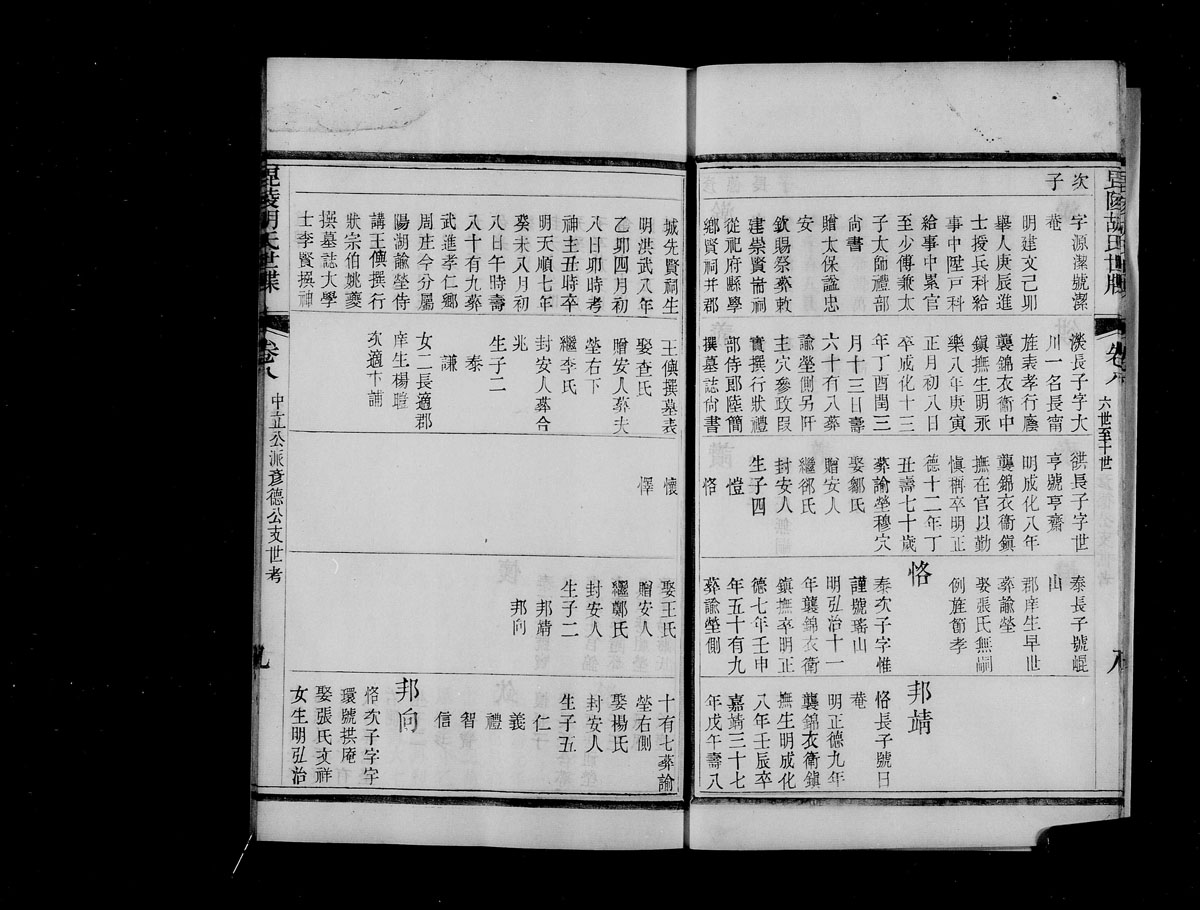 毘陵胡氏世牒
卷八
六世至十世
八
次子
字源潔號潔
菴
明建文己卯
舉人庚辰進
士授兵科給
事中陞戸科
給事中累官
至少傅兼太
子太師禮部
尙書
贈太保謚忠
安
欽賜祭葬敕
建崇賢耑祠
從祀府縣學
鄉賢祠幷郡
濙長子字大
川一名長甯
旌表孝行廕
襲錦衣衛中
鎭撫生明永
樂八年庚寅
正月初八日
卒成化十三
年丁酉閏三
月十三日壽
六十有八葬
諭塋側另阡
主穴參政段
實撰行狀禮
部侍郞陸簡
撰墓誌尙書
長子字世
亨號亨齋
明成化八年
襲錦衣衛鎭
撫在官以勤
愼稱卒明正
德十二年丁
丑壽七十歲
葬諭塋穆穴
娶鄒氏
贈安人
繼邻氏
封安人
生子四
愷
恪
泰長子號崐
山
郡庠生早世
葬諭塋
娶張氏無嗣
例旌節孝
恪
泰次子字惟
謹號瑤山
明弘治十一
年襲錦衣衛
鎭撫卒明正
德七年壬申
年五十有九
葬諭塋側
邦靖
恪長子號日
菴
明正德九年
襲錦衣衛鎭
撫生明成化
八年壬辰卒
嘉靖三十七
年戊午壽八
城先賢祠生
明洪武八年
乙卯四月初
八日卯時考
神主丑時卒
明天順七年
癸未八月初
八日午時壽
八十有九葬
武進孝仁鄉
周庄今分屬
陽湖諭塋侍
講王㒜撰行
狀宗伯姚夔
撰墓誌大學
士李賢撰神
王㒜撰墓表
娶查氏
贈安人葬夫
塋右下
繼李氏
封安人葬合
兆
生子二
泰
謙
女二長適郡
庠生楊暟
次適卞誧
懷
懌
娶王氏
贈安人
繼鄭氏
封安人
生子二
邦靖
邦向
十有七葬諭
塋右側
娶楊氏
封安人
生子五
仁
義
禮
智
信
邦向
恪次子字宇
環號拱庵
娶張氏文祥
女生明弘治
毘陵胡氏世牒
卷八
中立公派彥德公支世考
九